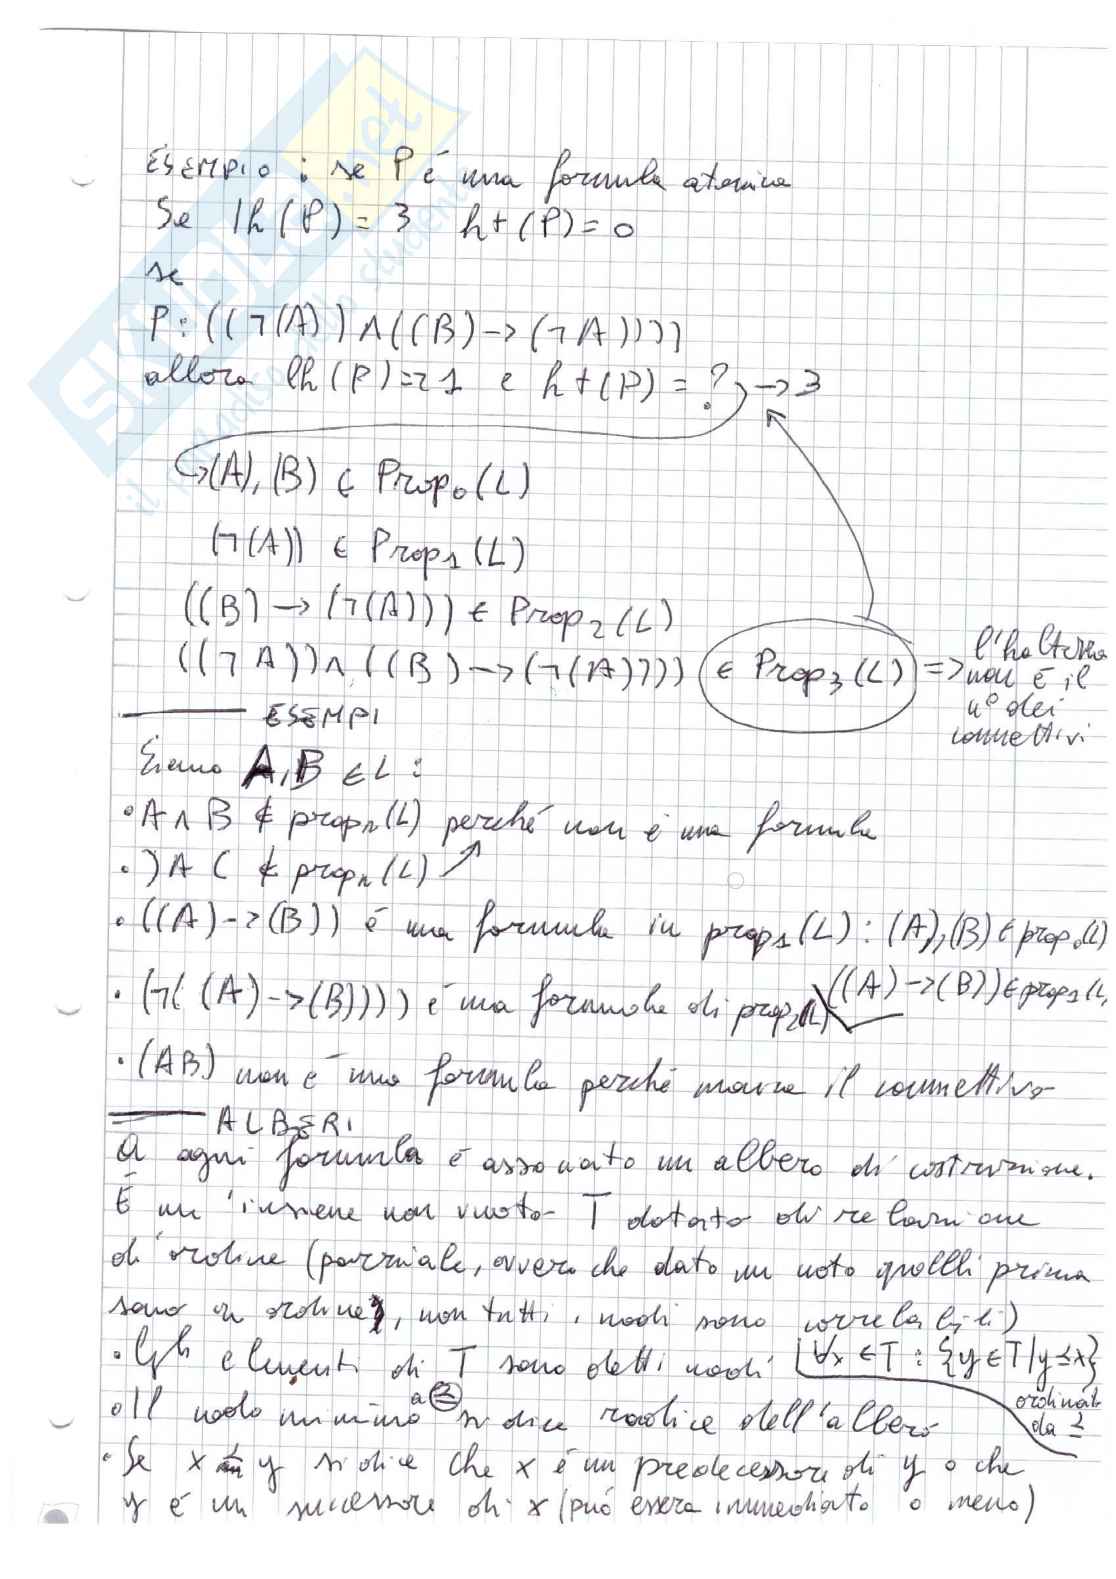 ESEMPIO : se P è una formula atomica
Se lh(P) = 3 ht(P) = 0
se
P: ((¬(A)) ∧ ((B) -> (¬A))))
allora lh(P)=21 e ht(P) = ? -> 3
(A), (B) ∈ Prop₀(L)
(¬(A)) ∈ Prop₁(L)
((B) -> (¬(A))) ∈ Prop₂(L)
((¬A)) ∧ ((B) -> (¬(A)))) ∈ Prop₃(L) => l'haltezza
non è il
n° dei
connettivi
ESEMPI
Siano A, B ∈ L :
• A ∧ B ∉ propₙ(L) perché non è una formula
• )A( ∉ propₙ(L)
• ((A) -> (B)) è una formula in prop₁(L) : (A), (B) ∈ prop₀(L)
• (¬((A) -> (B)))) è una formula di prop₂(L) ((A) -> (B)) ∈ prop₁(L)
• (AB) non è una formula perché manca il connettivo
ALBERI
A ogni formula è associato un albero di costruzione.
È un insieme non vuoto T dotato di relazione
d'ordine (parziale, ovvero che dato un noto quelli prima
sono in ordine, non tutti i nodi sono correlabili)
• Gli elementi di T sono detti nodi ∀x ∈ T : {y ∈ T | y ≤ x}
ordinat
da ≤
• Il nodo minimo a ≤ si dice radice dell'albero
• Se x ≤ y si dice che x è un predecessore di y o che
y è un successore di x (può essere immediato o meno)
SKUOLA.net
il paradiso dello studente